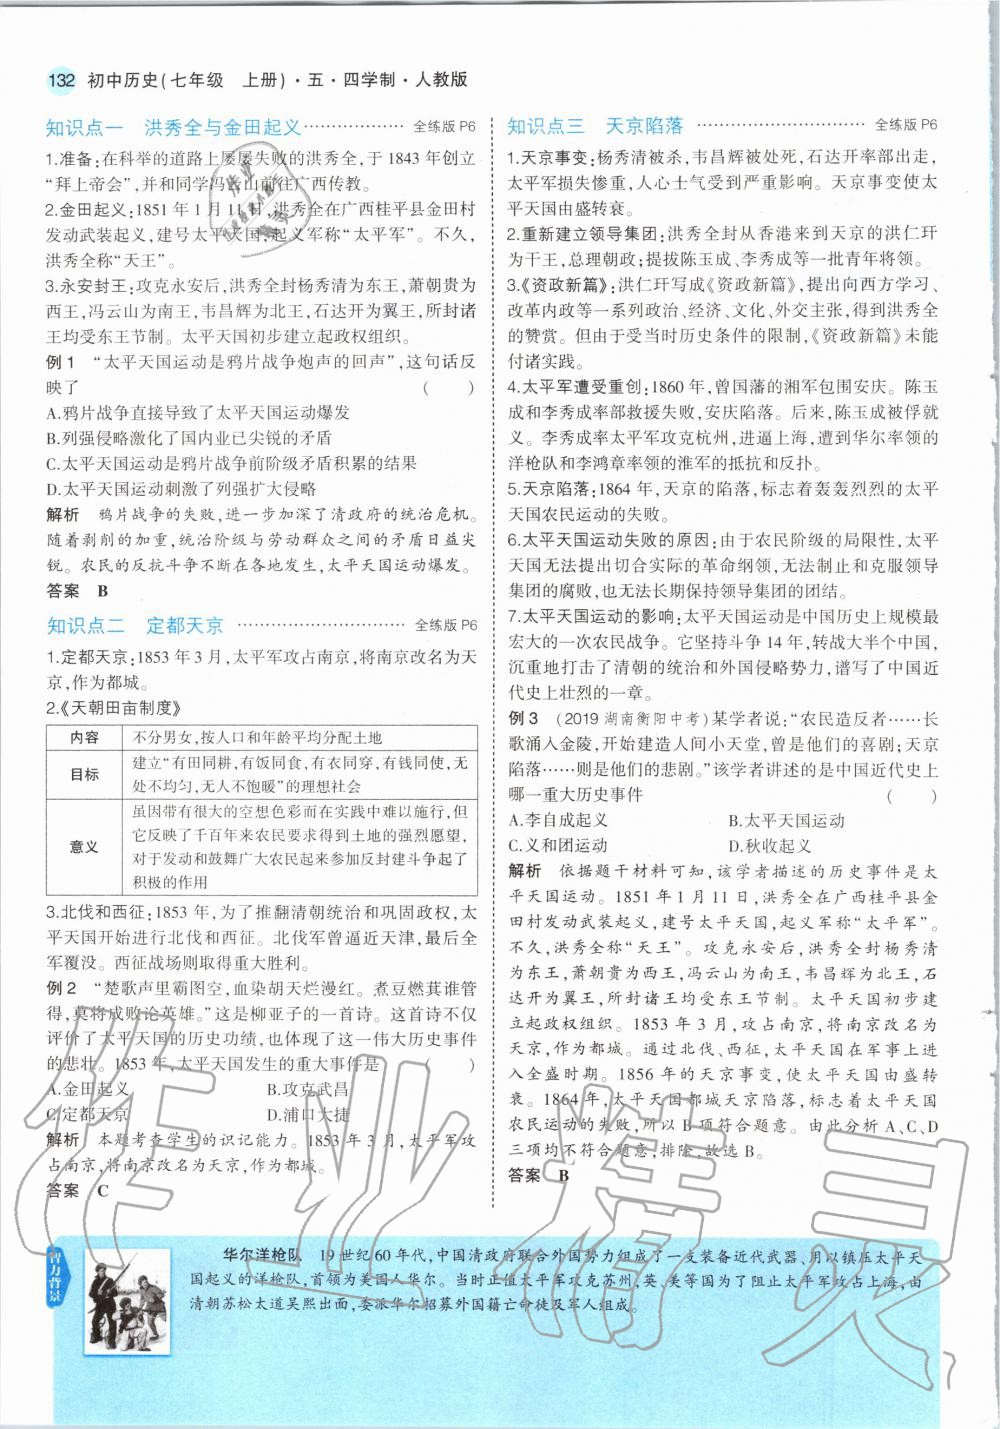 132 初中历史(七年级 上册)·五·四学制·人教版
知识点一 洪秀全与金田起义 ……………… 全练版 P6
1.准备:在科举的道路上屡屡失败的洪秀全,于 1843 年创立
“拜上帝会”,并和同学冯云山前往广西传教。
2.金田起义:1851 年 1 月 11 日,洪秀全在广西桂平县金田村
发动武装起义,建号太平天国,起义军称“太平军”。不久,
洪秀全称“天王”。
3.永安封王:攻克永安后,洪秀全封杨秀清为东王,萧朝贵为
西王,冯云山为南王,韦昌辉为北王,石达开为翼王,所封诸
王均受东王节制。太平天国初步建立起政权组织。
例 1 “太平天国运动是鸦片战争炮声的回声”,这句话反
映了 ( )
A.鸦片战争直接导致了太平天国运动爆发
B.列强侵略激化了国内业已尖锐的矛盾
C.太平天国运动是鸦片战争前阶级矛盾积累的结果
D.太平天国运动刺激了列强扩大侵略
解析 鸦片战争的失败,进一步加深了清政府的统治危机。
随着剥削的加重,统治阶级与劳动群众之间的矛盾日益尖
锐。农民的反抗斗争不断在各地发生,太平天国运动爆发。
答案 B
知识点二 定都天京 ……………………… 全练版 P6
1.定都天京:1853 年 3 月,太平军攻占南京,将南京改名为天
京,作为都城。
2.《天朝田亩制度》
内容 不分男女,按人口和年龄平均分配土地
目标 建立“有田同耕,有饭同食,有衣同穿,有钱同使,无
处不均匀,无人不饱暖”的理想社会
意义 虽因带有很大的空想色彩而在实践中难以施行,但
它反映了千百年来农民要求得到土地的强烈愿望,
对于发动和鼓舞广大农民起来参加反封建斗争起了
积极的作用
3.北伐和西征:1853 年,为了推翻清朝统治和巩固政权,太
平天国开始进行北伐和西征。北伐军曾逼近天津,最后全
军覆没。西征战场则取得重大胜利。
例 2 “楚歌声里霸图空,血染胡天烂漫红。煮豆燃萁谁管
得,莫将成败论英雄。”这是柳亚子的一首诗。这首诗不仅
评价了太平天国的历史功绩,也体现了这一伟大历史事件
的悲壮。1853 年,太平天国发生的重大事件是 ( )
A.金田起义 B.攻克武昌
C.定都天京 D.浦口大捷
解析 本题考查学生的识记能力。1853 年 3 月,太平军攻
占南京,将南京改名为天京,作为都城。
答案 C
知识点三 天京陷落 ……………………… 全练版 P6
1.天京事变:杨秀清被杀,韦昌辉被处死,石达开率部出走,
太平军损失惨重,人心士气受到严重影响。天京事变使太
平天国由盛转衰。
2.重新建立领导集团:洪秀全封从香港来到天京的洪仁玕
为干王,总理朝政;提拔陈玉成、李秀成等一批青年将领。
3.《资政新篇》:洪仁玕写成《资政新篇》,提出向西方学习、
改革内政等一系列政治、经济、文化、外交主张,得到洪秀全
的赞赏。但由于受当时历史条件的限制,《资政新篇》未能
付诸实践。
4.太平军遭受重创:1860 年,曾国藩的湘军包围安庆。陈玉
成和李秀成率部救援失败,安庆陷落。后来,陈玉成被俘就
义。李秀成率太平军攻克杭州,进逼上海,遭到华尔率领的
洋枪队和李鸿章率领的淮军的抵抗和反扑。
5.天京陷落:1864 年,天京的陷落,标志着轰轰烈烈的太平
天国农民运动的失败。
6.太平天国运动失败的原因:由于农民阶级的局限性,太平
天国无法提出切合实际的革命纲领,无法制止和克服领导
集团的腐败,也无法长期保持领导集团的团结。
7.太平天国运动的影响:太平天国运动是中国历史上规模最
宏大的一次农民战争。它坚持斗争 14 年,转战大半个中国,
沉重地打击了清朝的统治和外国侵略势力,谱写了中国近
代史上壮烈的一章。
例 3 (2019 湖南衡阳中考)某学者说:“农民造反者……长
歌涌入金陵,开始建造人间小天堂,曾是他们的喜剧;天京
陷落……则是他们的悲剧。”该学者讲述的是中国近代史上
哪一重大历史事件 ( )
A.李自成起义 B.太平天国运动
C.义和团运动 D.秋收起义
解析 依据题干材料可知,该学者描述的历史事件是太
平天国运动。1851 年 1 月 11 日,洪秀全在广西桂平县金
田村发动武装起义,建号太平天国,起义军称“太平军”。
不久,洪秀全称“天王”。攻克永安后,洪秀全封杨秀清
为东王,萧朝贵为西王,冯云山为南王,韦昌辉为北王,石
达开为翼王,所封诸王均受东王节制。太平天国初步建
立起政权组织。1853 年 3 月,攻占南京,将南京改名为
天京,作为都城。通过北伐、西征,太平天国在军事上进
入全盛时期。1856 年的天京事变,使太平天国由盛转
衰。1864 年,太平天国都城天京陷落,标志着太平天国
农民运动的失败,所以 B 项符合题意。由此分析 A、C、D
三项均不符合题意,排除,故选 B。
答案 B
智力背景
华尔洋枪队 19 世纪 60 年代,中国清政府联合外国势力组成了一支装备近代武器、用以镇压太平天
国起义的洋枪队,首领为美国人华尔。当时正值太平军攻克苏州,英、美等国为了阻止太平军攻占上海,由
清朝苏松太道吴煦出面,委派华尔招募外国籍亡命徒及军人组成。
作业精灵